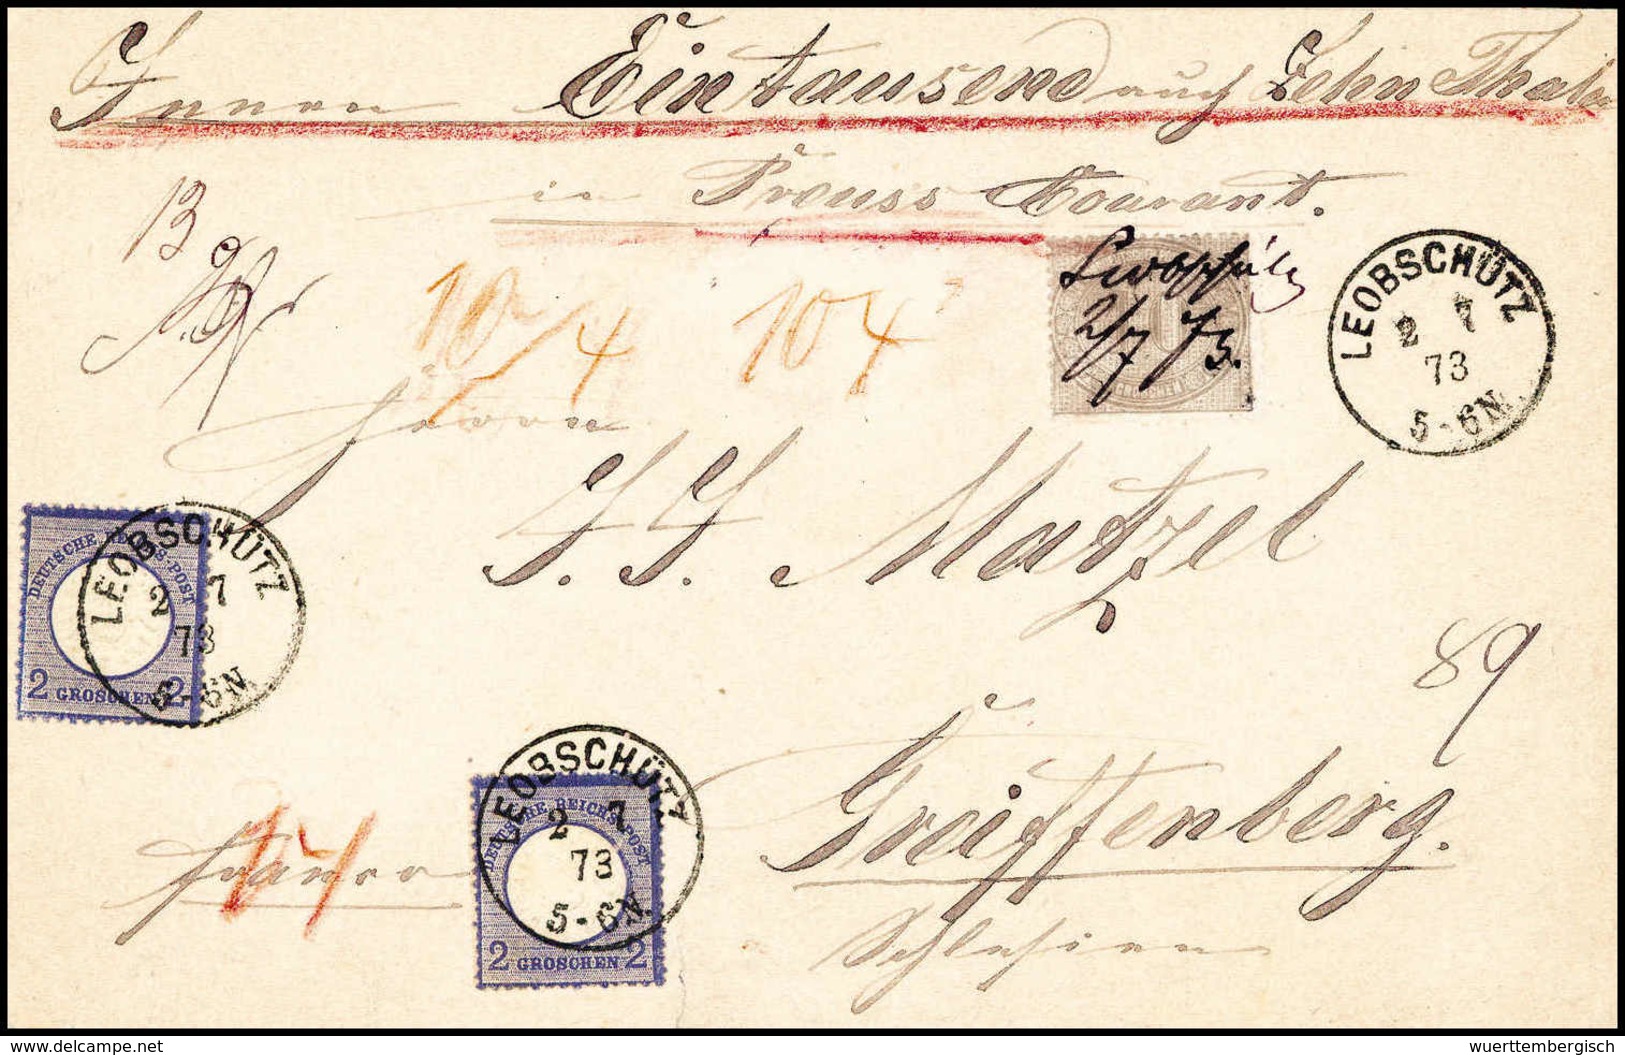 Innen Eintausend auch Zehn Thaler
in Preuss Courant.
13
10/4
10 4
Leobschütz
2/7 73.
LEOBSCHÜTZ
2 7
73
5-6N.
Herrn
J. J. Matzel
DEUTSCHE REICHS-POST
2 GROSCHEN 2
LEOBSCHÜTZ
2 7
73
5-6N.
89
Greiffenberg.
Schlesien
franco
DEUTSCHE REICHS-POST
2 GROSCHEN 2
LEOBSCHÜTZ
2 7
73
5-6N.
© delcampe.net
wuerttembergisch